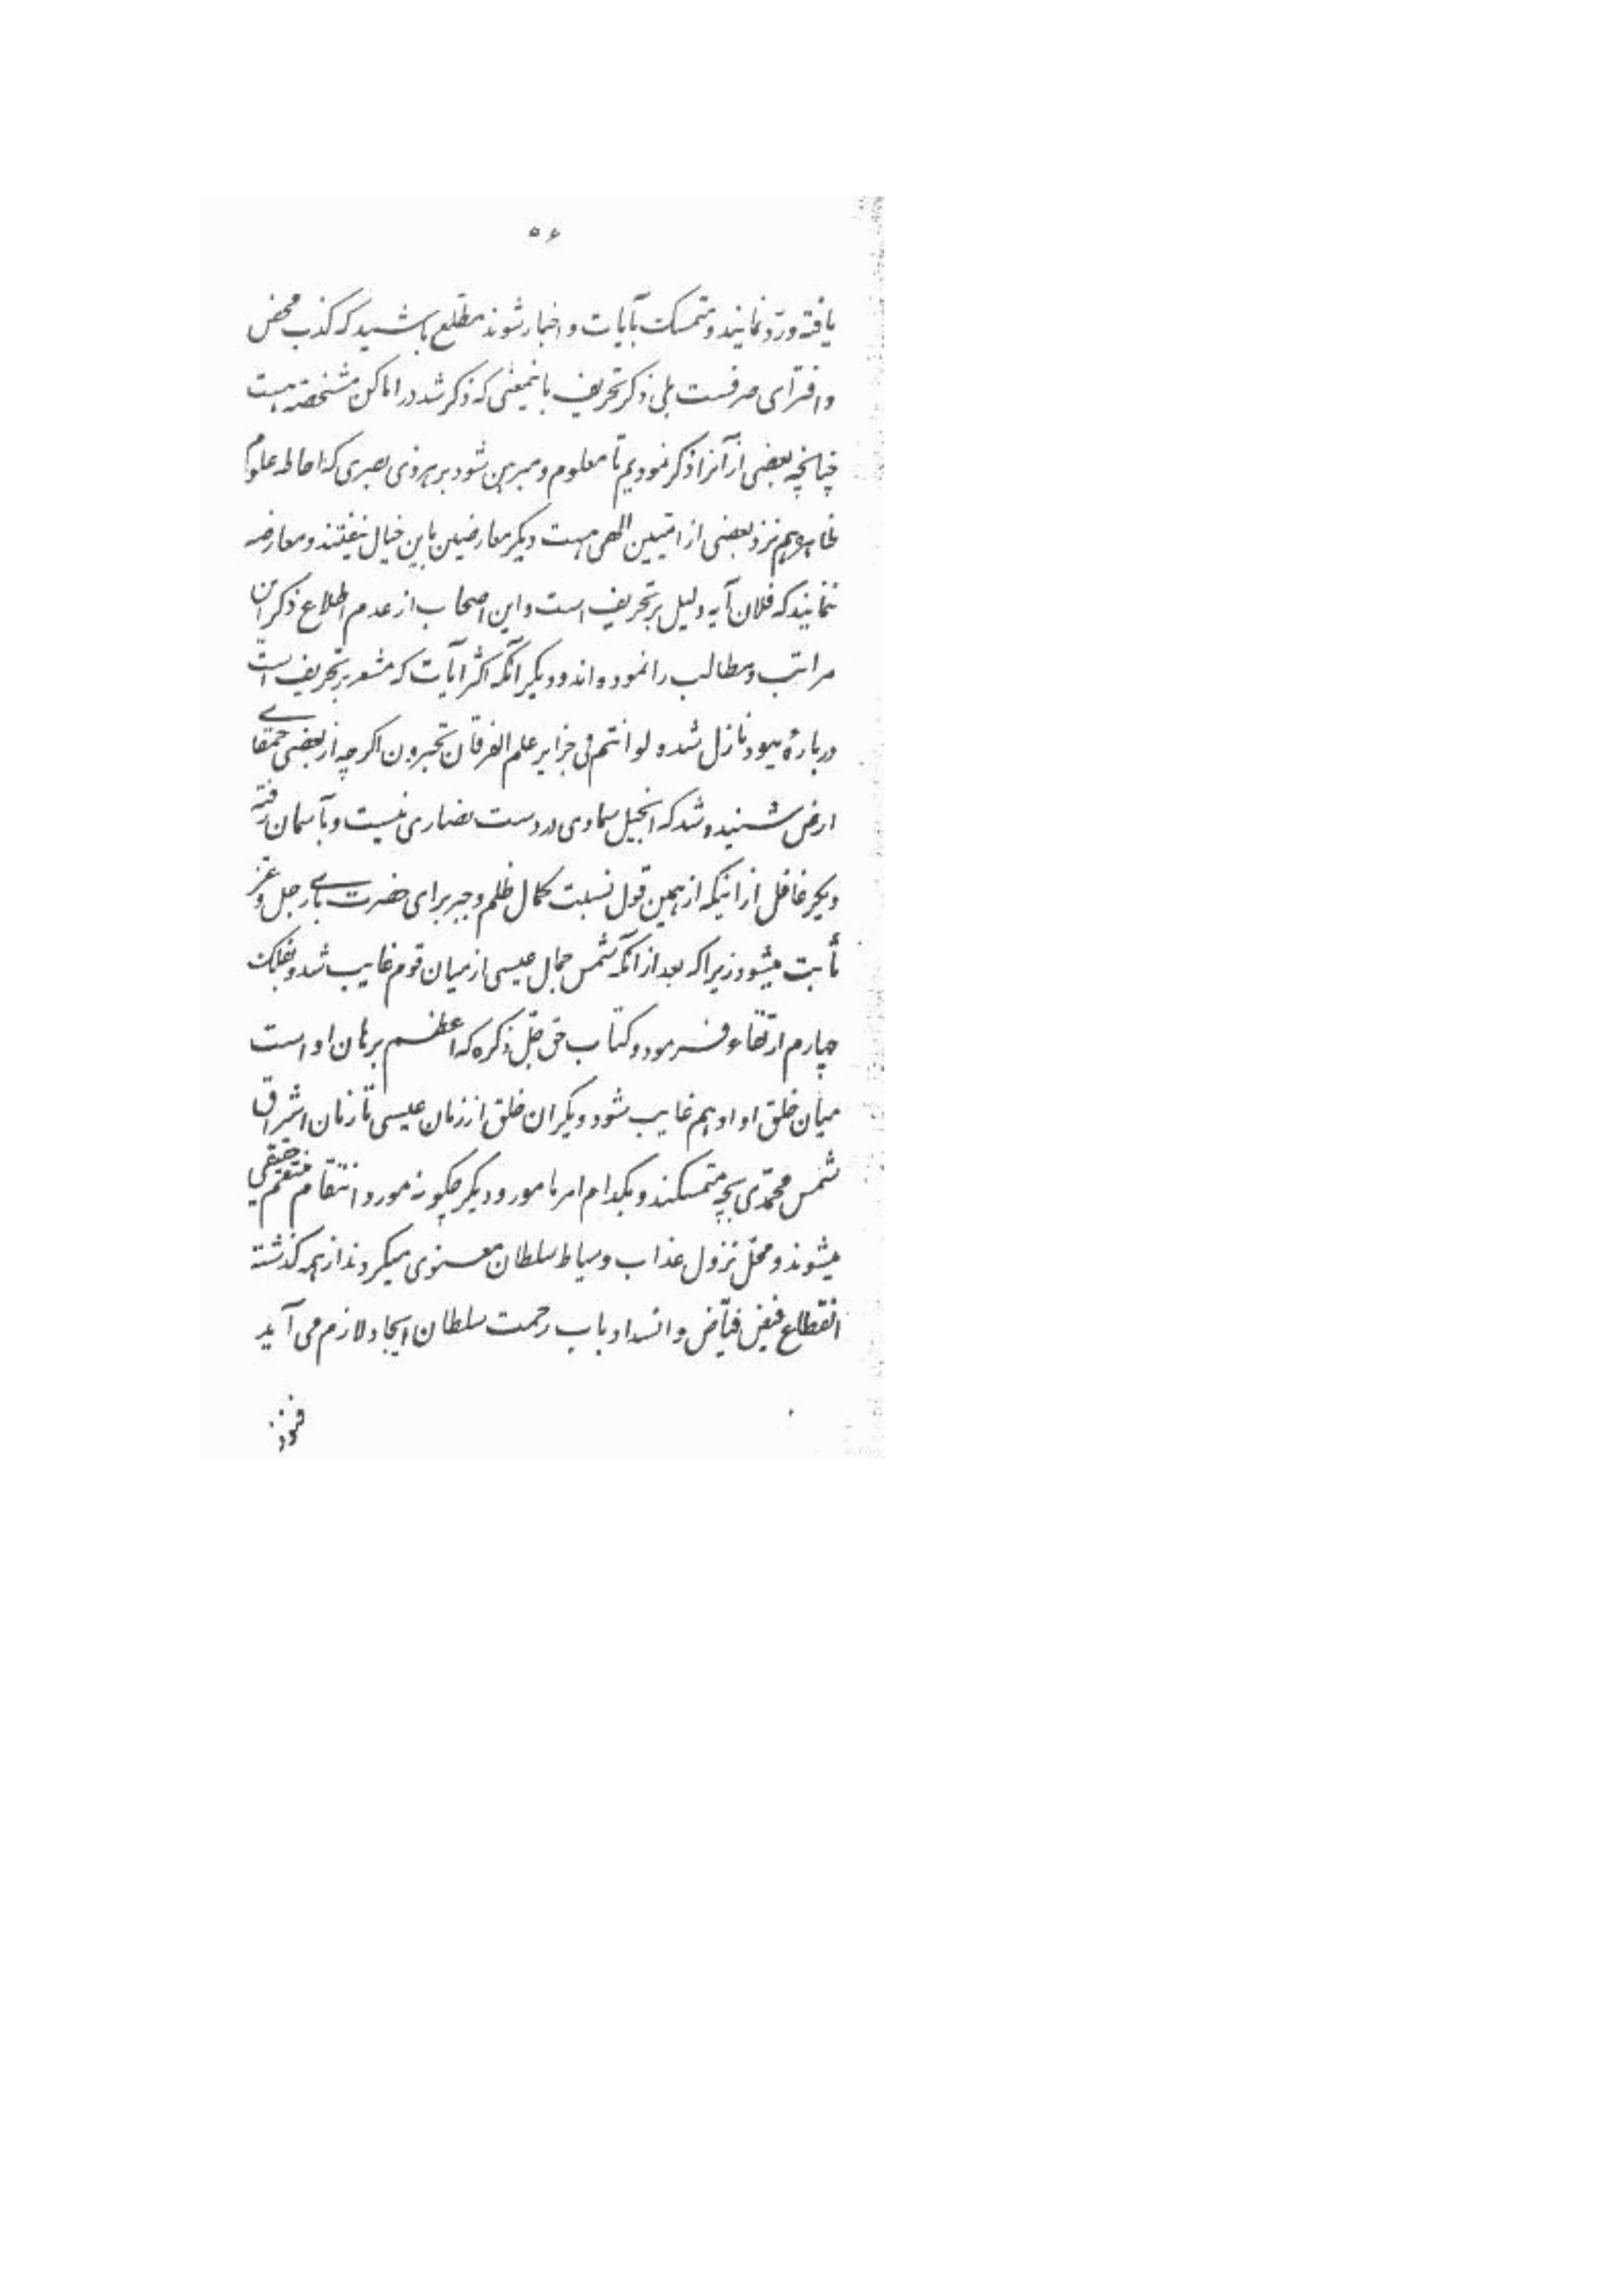 ۵۶
یافته و ردّ نمایند و متمسک بآیات و اخبار شوند مطّلع باشید که کذب محض
و افترای صرفست بلی ذکر تحریف باینمعنی که ذکر شد در اماکن مشخصه هست
چنانچه بعضی از آنرا ذکر نمودیم تا معلوم و مبرهن شود بر هر ذی بصری که احاطه علوم
ظاهره هم نزد بعضی از امّیین الهی هست دیگر معارضین باین خیال نیفتند و معارضه
ننمایند که فلان آیه دلیل بر تحریف است و این اصحاب از عدم اطلاع ذکر این
مراتب و مطالب را نموده‌اند و دیگر آنکه اکثر آیات که مشعر بر تحریف است
دربارهٔ یهود نازل شده لو انتم فی جزایر علم الفرقان تحبرون اگرچه از بعضی حمقای
ارض شنیده شد که انجیل سماوی در دست نصاری نیست و بآسمان رفته
دیگر غافل از اینکه از همین قول نسبت کمال ظلم و جبر برای حضرت باری جل و عز
ثابت میشود زیرا که بعد از آنکه شمس جمال عیسی از میان قوم غایب شد و بفلک
چهارم ارتقاء فرمود و کتاب حق جلّ ذکره که اعظم برهان او است
میان خلق او او هم غایب شود دیگر ان خلق از زمان عیسی تا زمان اشراق
شمس محمّدی بچه متمسکند و بکدام امر مامور و دیگر چگونه مورد انتقام منتقم حقیقی
میشوند و محلّ نزول عذاب و سیاط سلطان معنوی میگردند از همه گذشته
انقطاع فیض فیّاض و انسداد باب رحمت سلطان ایجاد لازم می آید
فنعوذ